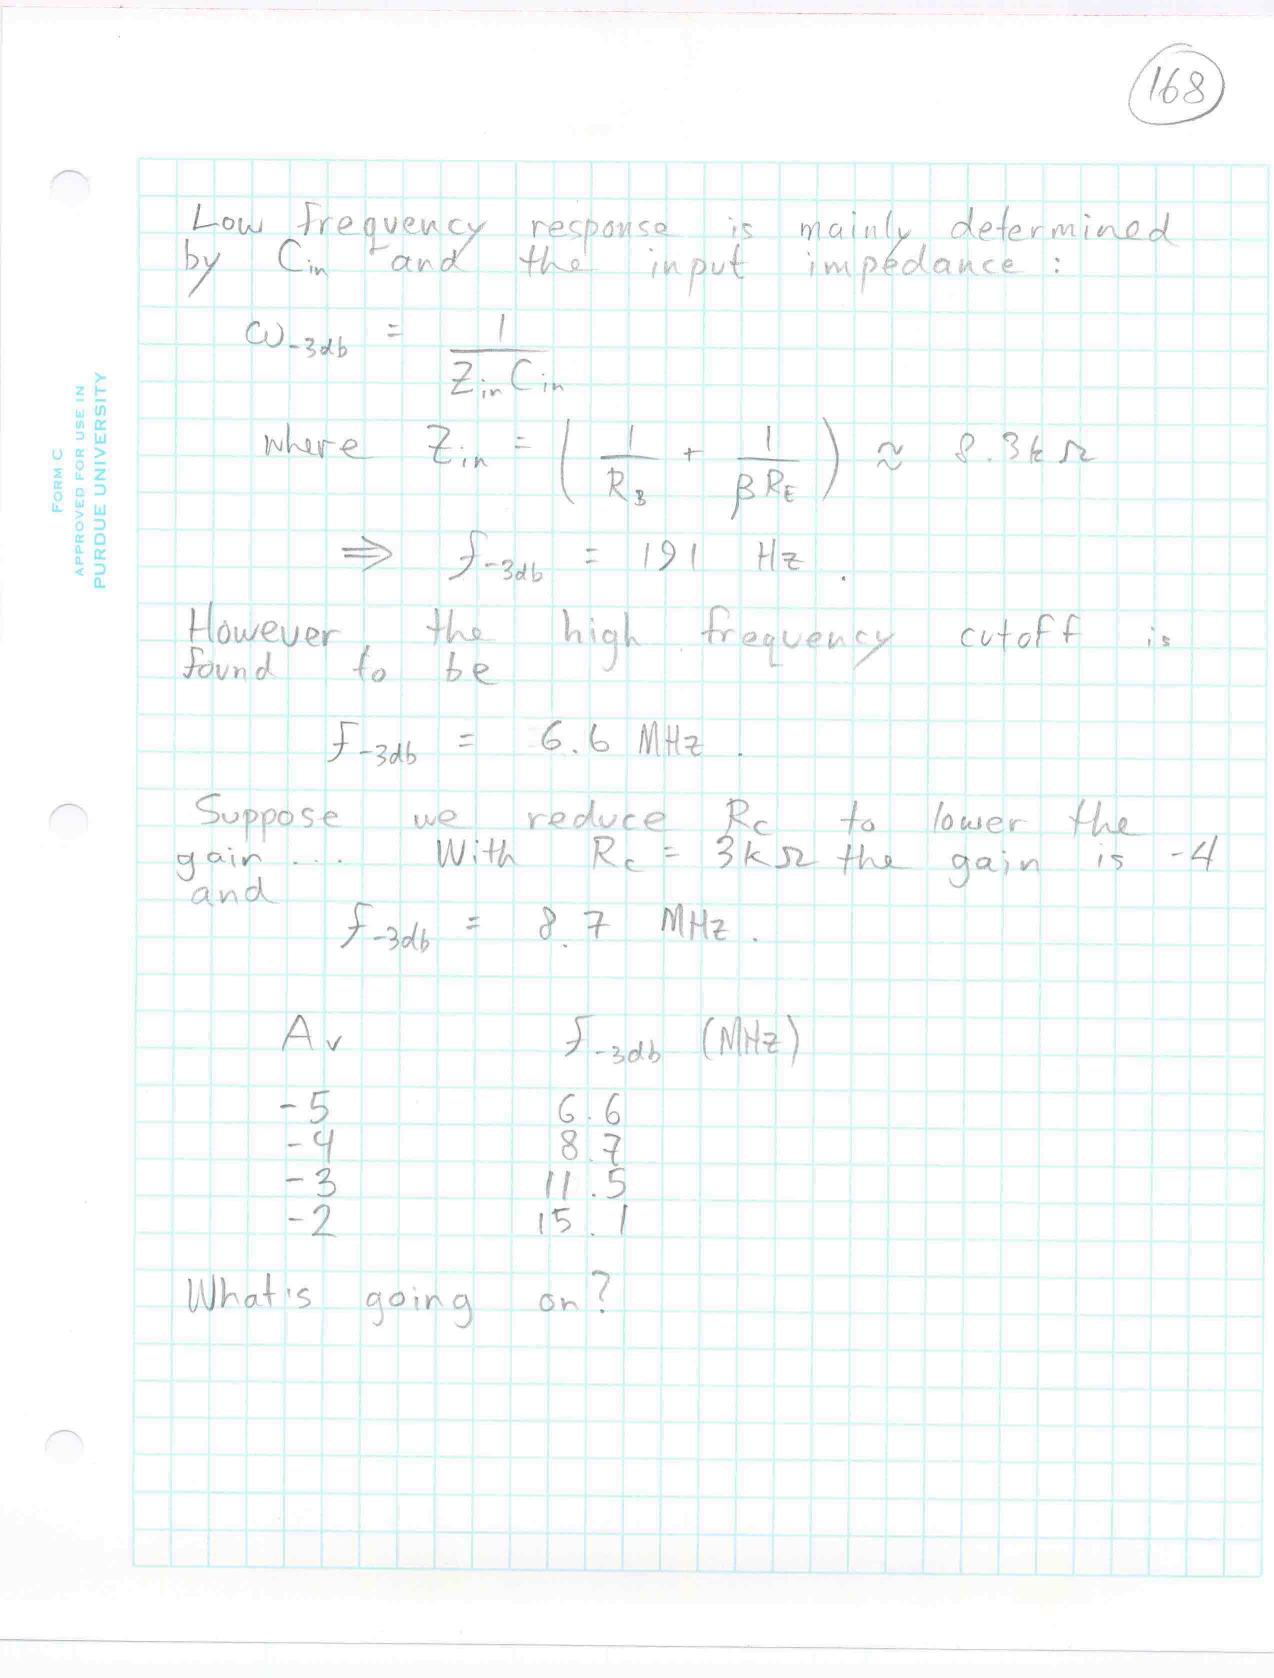 168
FORM C
APPROVED FOR USE IN
PURDUE UNIVERSITY
Low frequency response is mainly determined
by Cin and the input impedance :
ω-3db = 1 / Zin Cin
where Zin = ( 1/RB + 1/βRE ) ≈ 8.3kΩ
⇒ f-3db = 191 Hz .
However the high frequency cutoff is
found to be
f-3db = 6.6 MHz .
Suppose we reduce Rc to lower the
gain .... With Rc = 3kΩ the gain is -4
and
f-3db = 8.7 MHz .
Av f-3db (MHz)
-5 6.6
-4 8.7
-3 11.5
-2 15.1
What's going on?